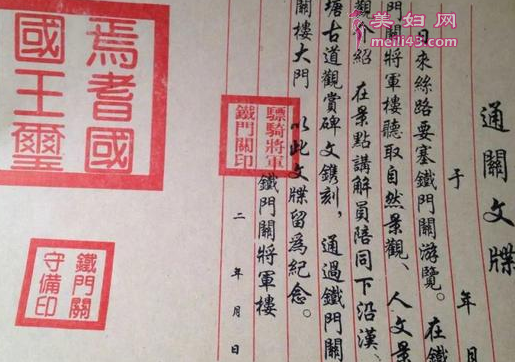 美妇网
meili43.com
通關文牒
于 年 月
日來絲路要塞鐵門關游覽。在鐵
門關將軍樓聽取自然景觀、人文景
觀介紹 在景點講解員陪同下沿漢、
塘古道觀賞碑文鐫刻，通過鐵門關
關樓大門 以此文牒留為紀念。
鐵門關將軍樓
二 年 月 日
驃騎將軍
鐵門關印
焉耆國
國王璽
鐵門關
守備印